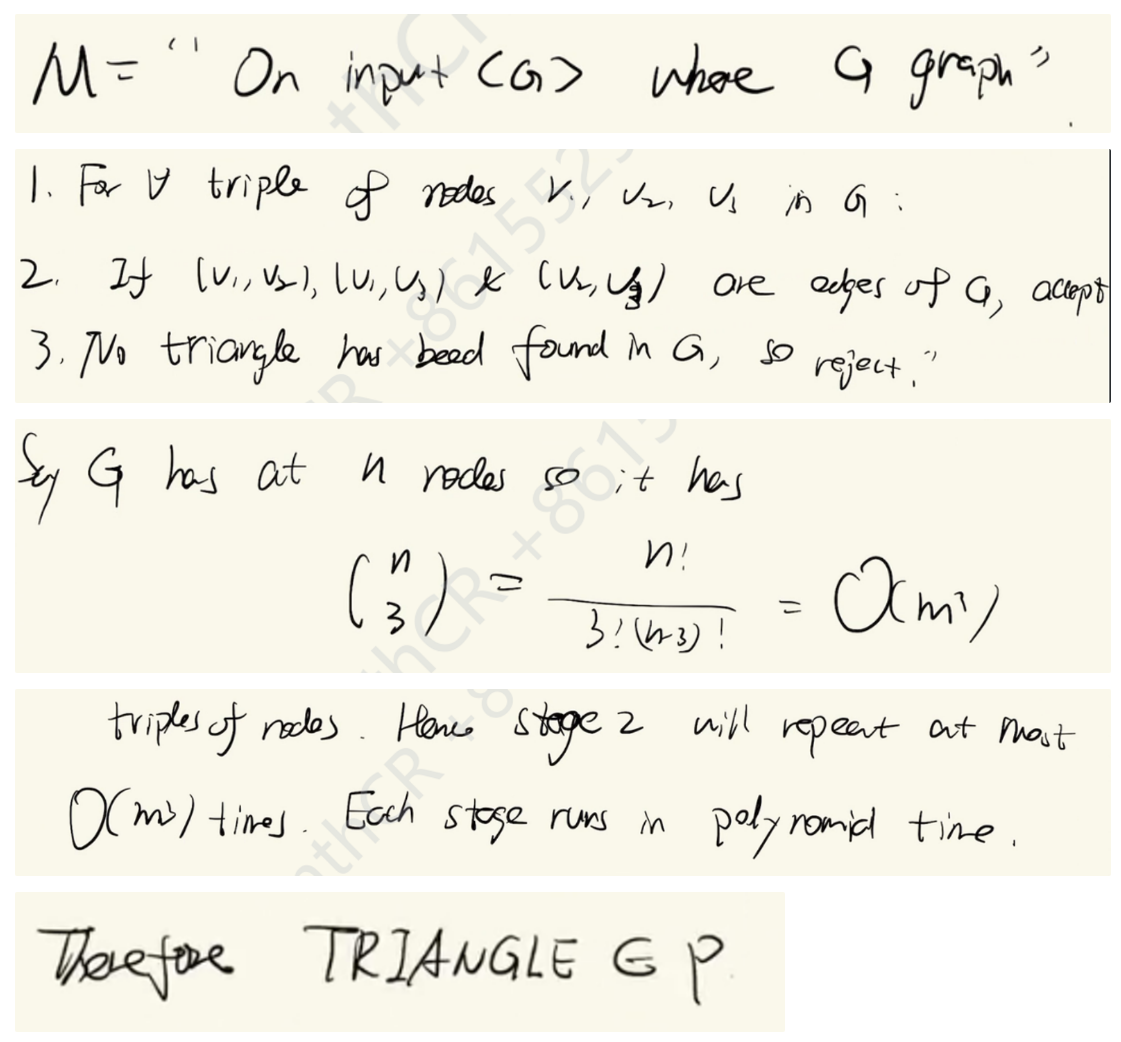 M = " On input <G> where G graph".
1. For ∀ triple of nodes v₁, v₂, v₃ in G :
2. If (v₁, v₂), (v₁, v₃) & (v₂, v₃) are edges of G, accept
3. No triangle has beed found in G, so reject."
Say G has at n nodes so it has
(n 3) = n! / 3!(n-3)! = O(m³)
triples of nodes. Hence stage 2 will repeat at most
O(m³) times. Each stage runs in polynomial time.
Therefore TRIANGLE ∈ P.